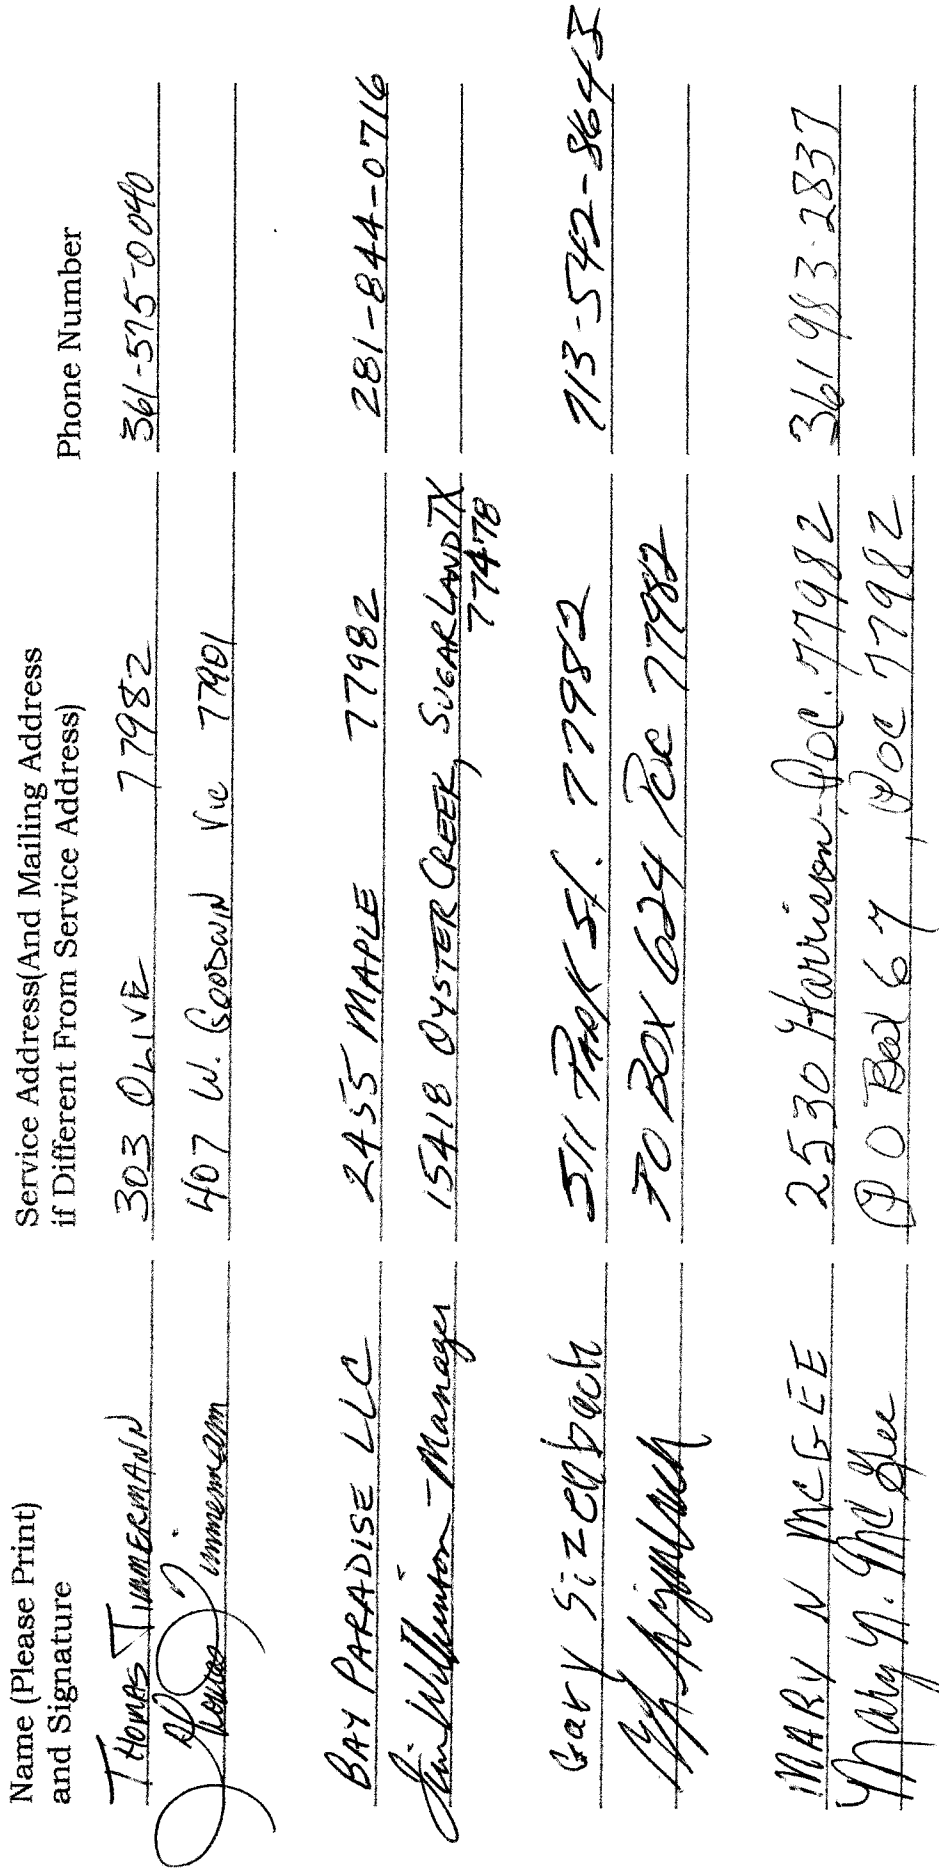 Name (Please Print)
and Signature
Service Address(And Mailing Address
if Different From Service Address)
Phone Number
THOMAS TIMMERMANN 303 OLIVE 77982 361-575-0040
Thomas Timmermann 407 W. GOODWIN Vic 77901
BAY PARADISE LLC 2455 MAPLE 77982 281-844-0716
Jim Wilkinson - Manager 15418 OYSTER CREEK, SUGAR LAND TX
77478
Gary Sizenbach 511 PARK St. 77982 713-542-8643
PO BOX 624 POC 77982
MARY N MCGEE 2530 Harrison - POC. 77982 361 983-2837
Mary N. McGee P O Box 67, POC 77982